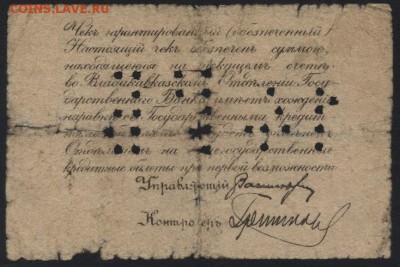 COINS.SU
COINSAVE.RU
Чекъ гарантированный (обезпеченный)
Настоящій чекъ обезпеченъ суммою,
находящеюся на текущемъ счету
во Владикавказскомъ Отдѣленіи Госу
дарственнаго Банка имѣетъ хожденіе
наравнѣ съ Государственными кредит
Отдѣленіемъ на государственные
кредитные билеты при первой возможности.
Управляющій
Контролеръ